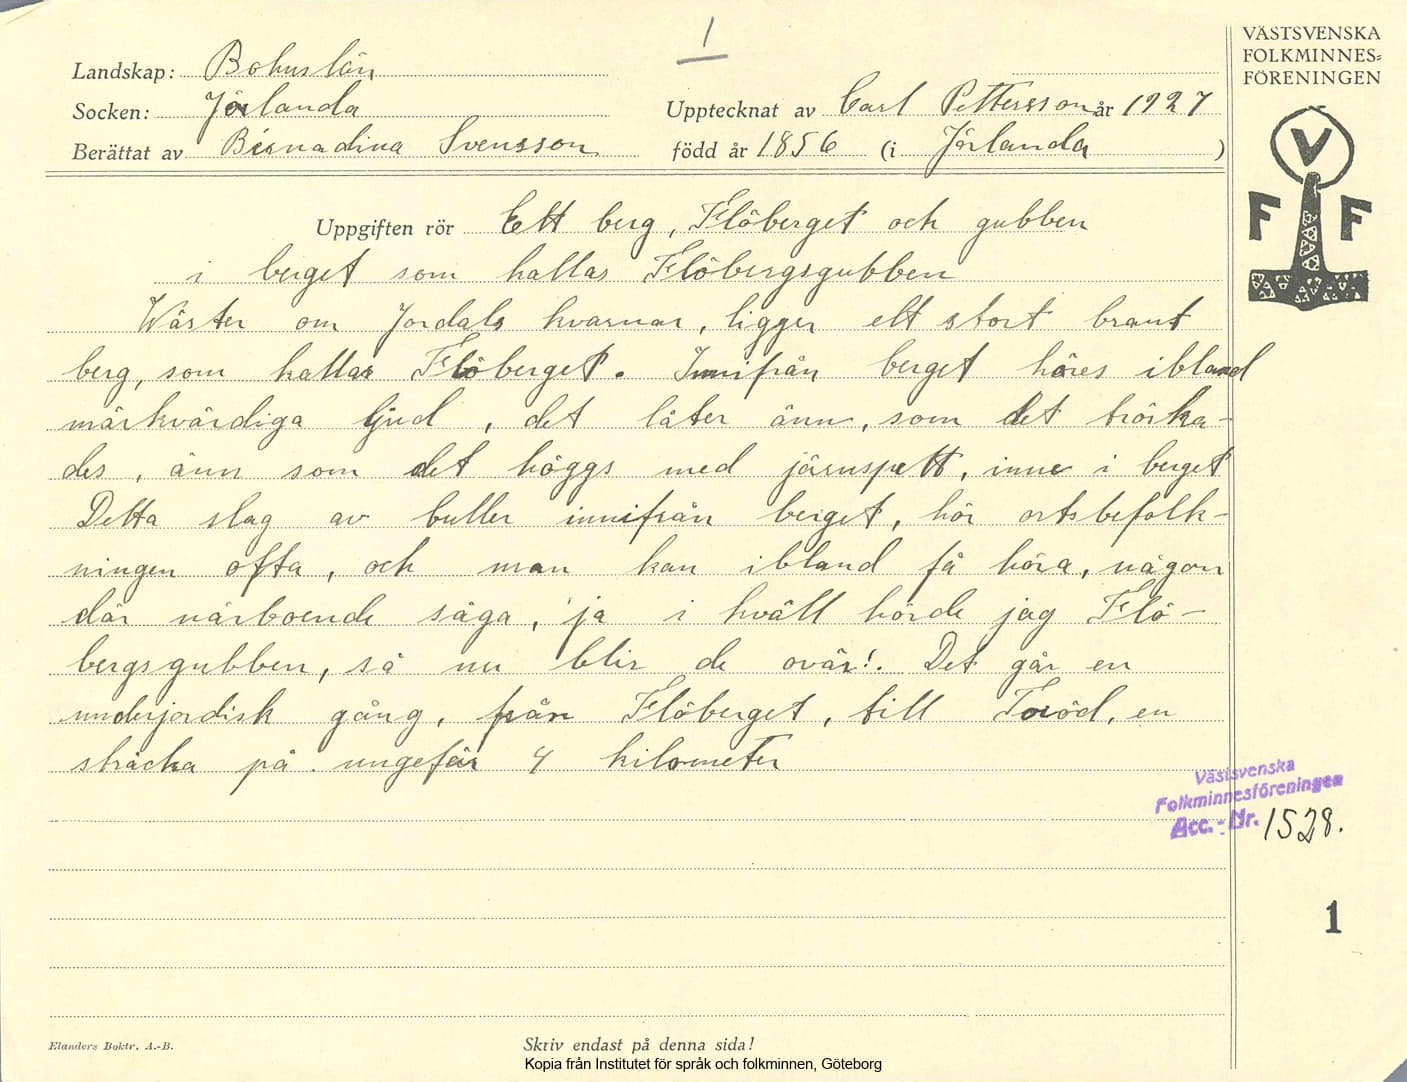 1
VÄSTSVENSKA
FOLKMINNES=
FÖRENINGEN
Landskap: Bohuslän
Socken: Jörlanda
Upptecknat av Carl Pettersson år 1927
Berättat av Bernadina Svensson
född år 1856 (i Jörlanda)
V
F F
Uppgiften rör Ett berg, Flöberget och gubben
i berget som kallas Flöbergsgubben
Wäster om Jordals kvarnar, ligger ett stort brant
berg, som kallas Flöberget. Innifrån berget höres ibland
märkvärdiga ljud, det låter änn, som det tröska-
des, änn som det höggs med järnspett, inne i berget
Detta slag av buller innifrån berget, hör ortsbefolk-
ningen ofta, och man kan ibland få höra, någon
där närboende säga, ja i kväll hörde jag Flö-
bergsgubben, så nu blir de ovär!. Det går en
underjordisk gång, från Flöberget, till Toröd, en
sträcka på ungefär 4 kilometer
Västsvenska
Folkminnesföreningen
Acc. - Nr. 1528.
1
Elanders Boktr. A.-B.
Skriv endast på denna sida!
Kopia från Institutet för språk och folkminnen, Göteborg